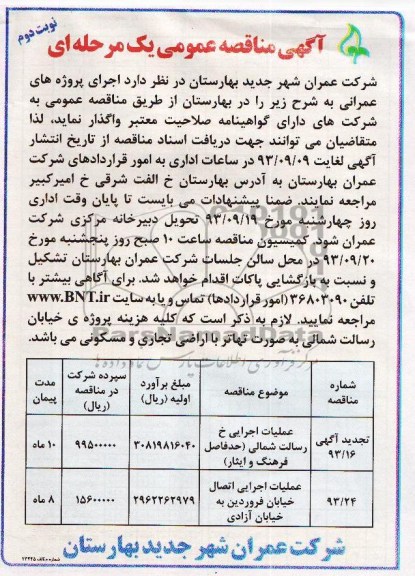 نوبت دوم
آگهی مناقصه عمومی یک مرحله ای
شرکت عمران شهر جدید بهارستان در نظر دارد اجرای پروژه های
عمرانی به شرح زیر را در بهارستان از طریق مناقصه عمومی به
شرکت های دارای گواهینامه صلاحیت معتبر واگذار نماید، لذا
متقاضیان می توانند جهت دریافت اسناد مناقصه از تاریخ انتشار
آگهی لغایت ۹۳/۰۹/۰۹ در ساعات اداری به امور قراردادهای شرکت
عمران بهارستان به آدرس بهارستان خ الفت شرقی خ امیرکبیر
مراجعه نمایند. ضمنا پیشنهادات می بایست تا پایان وقت اداری
روز چهارشنبه مورخ ۹۳/۰۹/۱۹ تحویل دبیرخانه مرکزی شرکت
عمران شود. کمیسیون مناقصه ساعت ۱۰ صبح روز پنجشنبه مورخ
۹۳/۰۹/۲۰ در محل سالن جلسات شرکت عمران بهارستان تشکیل
و نسبت به بازگشایی پاکات اقدام خواهد شد. برای آگاهی بیشتر با
تلفن ۳۶۸۰۳۰۹۰ (امور قراردادها) تماس و یا به سایت www.BNT.ir
مراجعه نمایید. لازم به ذکر است که کلیه هزینه پروژه ی خیابان
رسالت شمالی به صورت تهاتر با اراضی تجاری و مسکونی می باشد.
شماره مناقصه
موضوع مناقصه
مبلغ برآورد اولیه (ریال)
سپرده شرکت در مناقصه (ریال)
مدت پیمان
تجدید آگهی ۹۳/۱۶
عملیات اجرایی خ
رسالت شمالی (حدفاصل
فرهنگ و ایثار)
۳۰۸۱۹۸۱۶۰۴۰
۹۹۵۰۰۰۰۰
۱۰ ماه
۹۳/۲۴
عملیات اجرایی اتصال
خیابان فروردین به
خیابان آزادی
۲۹۶۲۲۶۲۹۷۹
۱۵۶۰۰۰۰۰
۸ ماه
شرکت عمران شهر جدید بهارستان
ParsNamadData